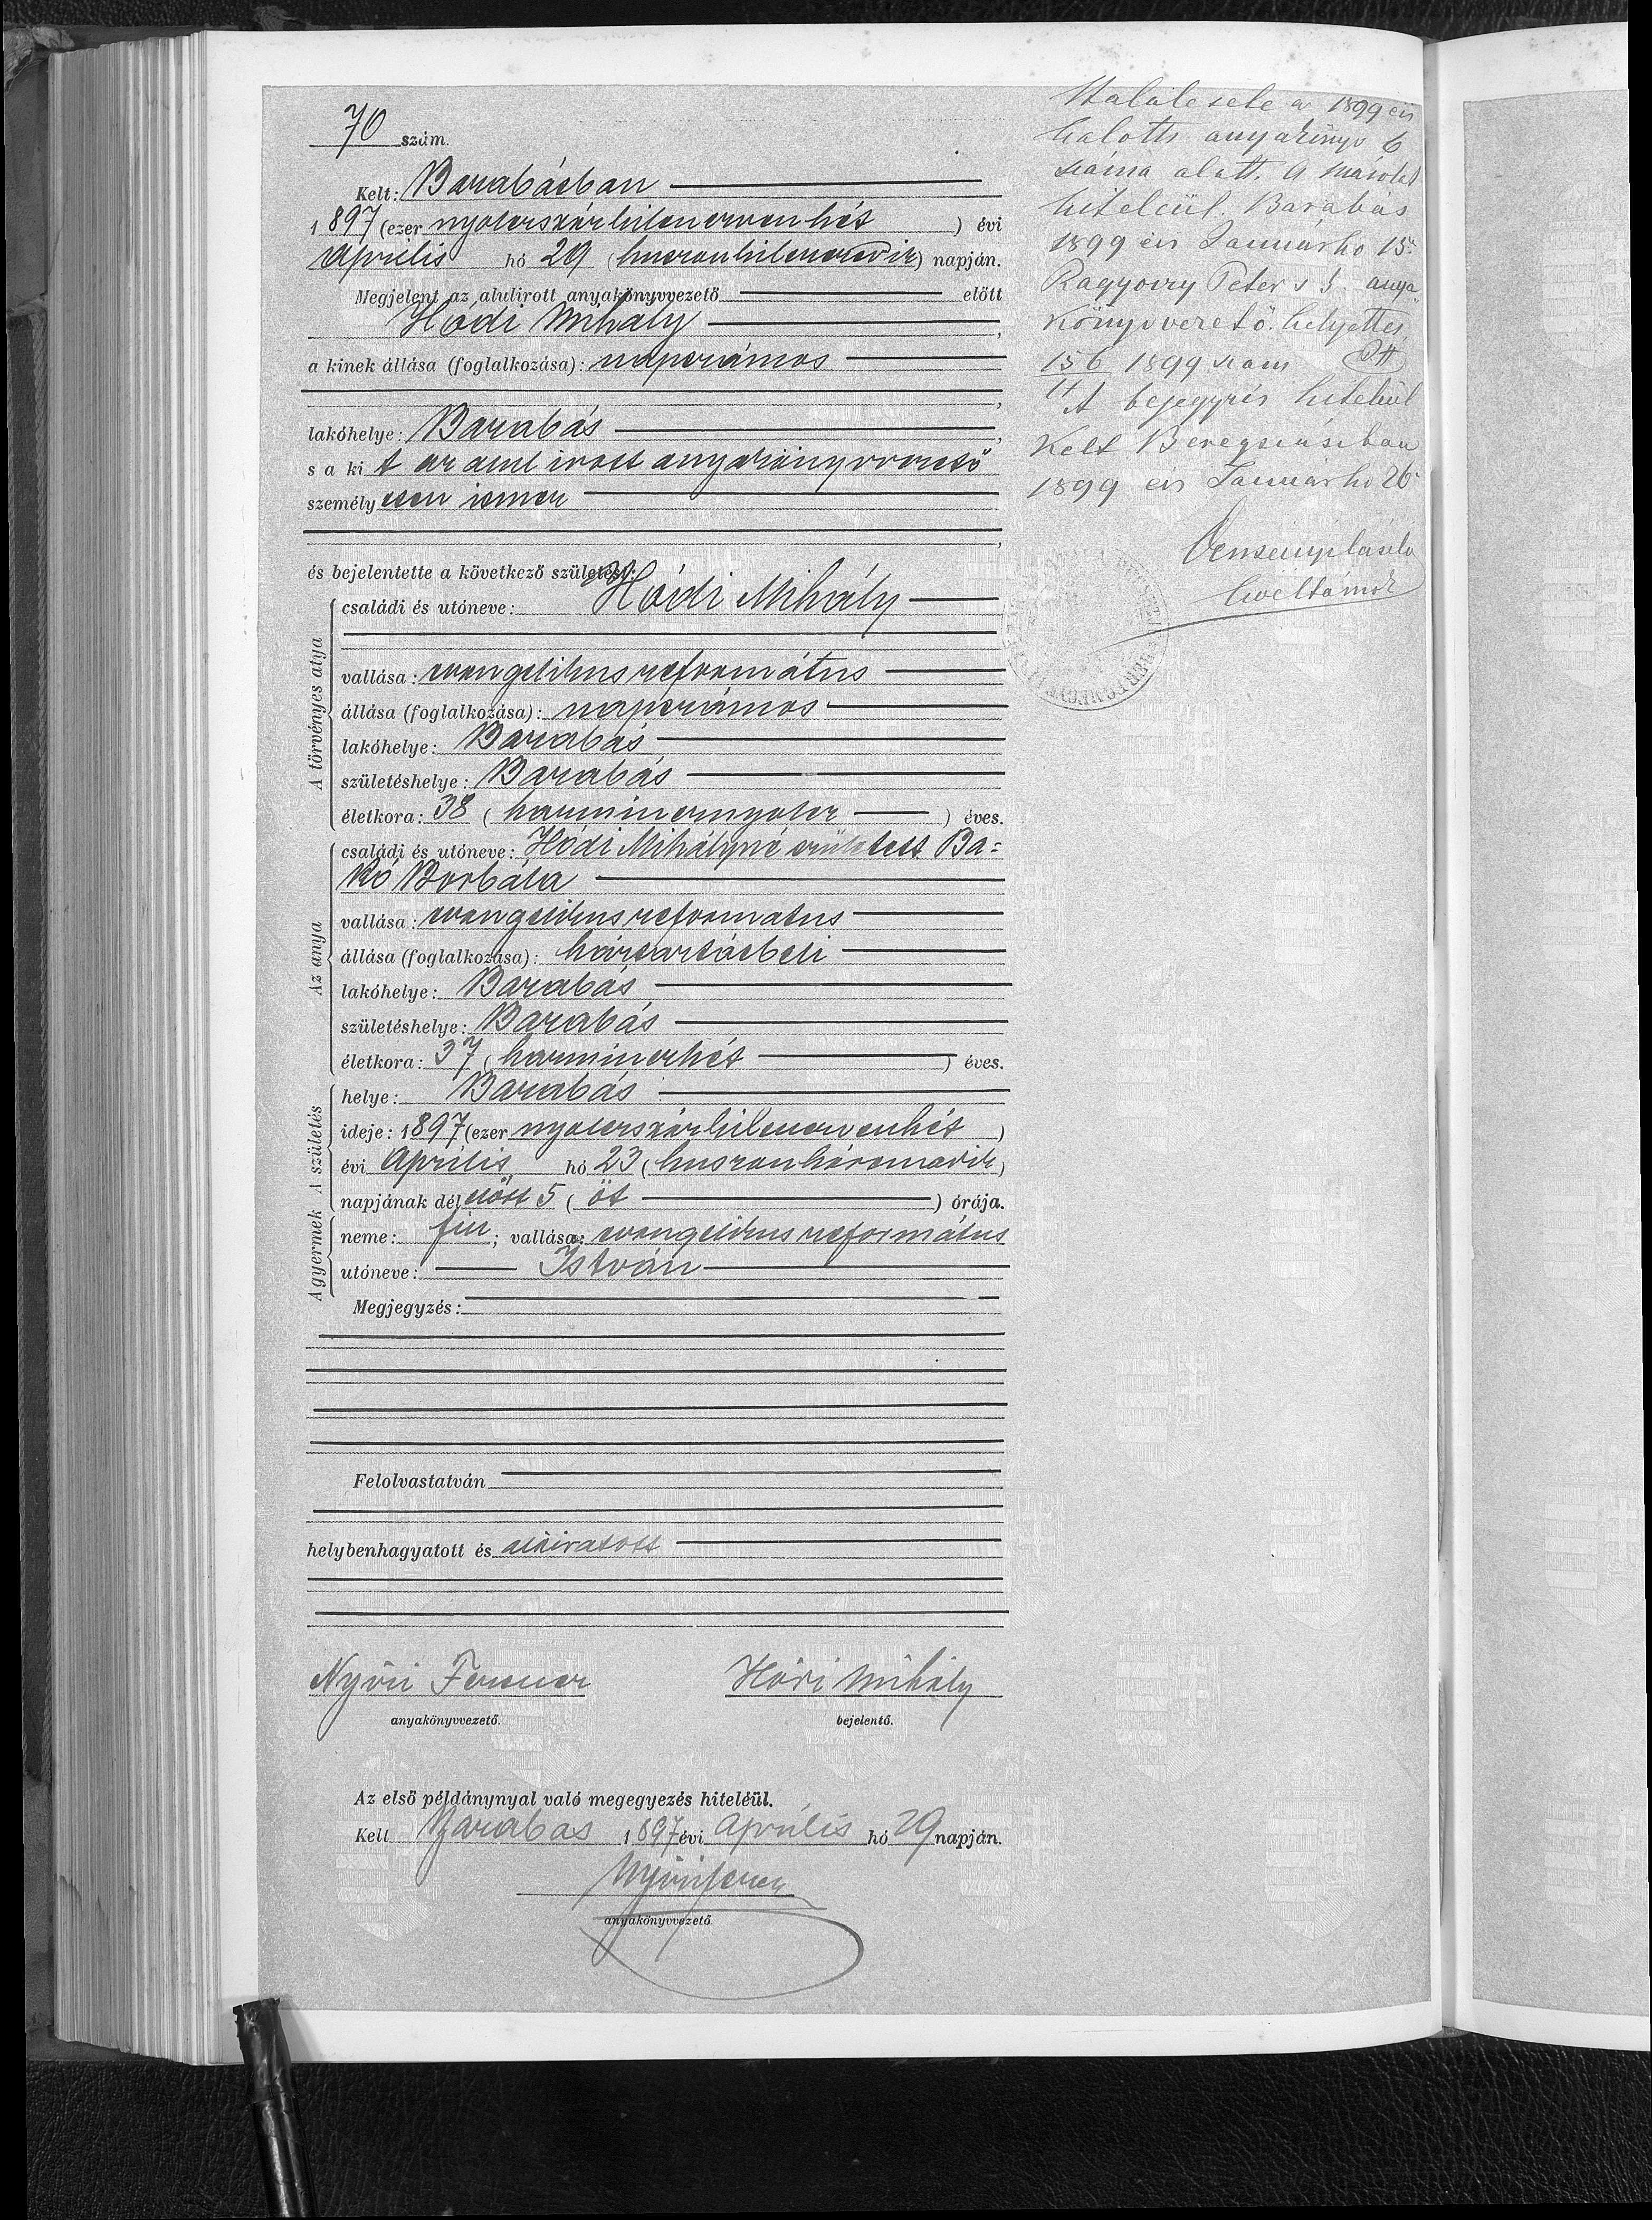 70 szám.
Kelt: Barabásban
1897 (ezer nyolczszázkilenczvenhét) évi
Április hó 29 (huszonkilenczedik) napján.
Megjelent az alulirott anyakönyvvezető előtt
Hódi Mihály,
a kinek állása (foglalkozása): napszámos
lakóhelye: Barabás,
s a kit az alul irott anyakönyvvezető
személyesen ismer
és bejelentette a következő születést:
A törvényes atya
családi és utóneve: Hódi Mihály
vallása: evangelikus református
állása (foglalkozása): napszámos
lakóhelye: Barabás
születéshelye: Barabás
életkora: 38 (harmincznyolcz) éves.
Az anya
családi és utóneve: Hódi Mihályné született Ba=
kó Borbála
vallása: evangelikus reformatus
állása (foglalkozása): háztartásbeli
lakóhelye: Barabás
születéshelye: Barabás
életkora: 37 (harminczhét) éves.
A születés
helye: Barabás
ideje: 1897 (ezer nyolczszázkilenczvenhét)
évi Április hó 23 (huszonharmadik)
napjának délelőtt 5 (öt) órája.
A gyermek
neme: fiu; vallása: evangelikus református
utóneve: István
Megjegyzés:
Felolvastatván
helybenhagyatott és aláiratott
Nyíri Ferencz Hódi Mihály
anyakönyvvezető. bejelentő.
Az első példánynyal való megegyezés hiteléül.
Kelt Barabas 1897 évi Április hó 29 napján.
Nyíri Ferencz
anyakönyvvezető
Halálesete az 1899 évi
halotti anyakönyv 6
száma alatt. A másolat
hiteléül. Barabás
1899 évi Januárhó 15.
Péter s. k. anya
könyvvezető helyettes
156 1899 szám
A bejegyzés hiteléül
Kelt Beregszászban
1899 évi Januárhó 26